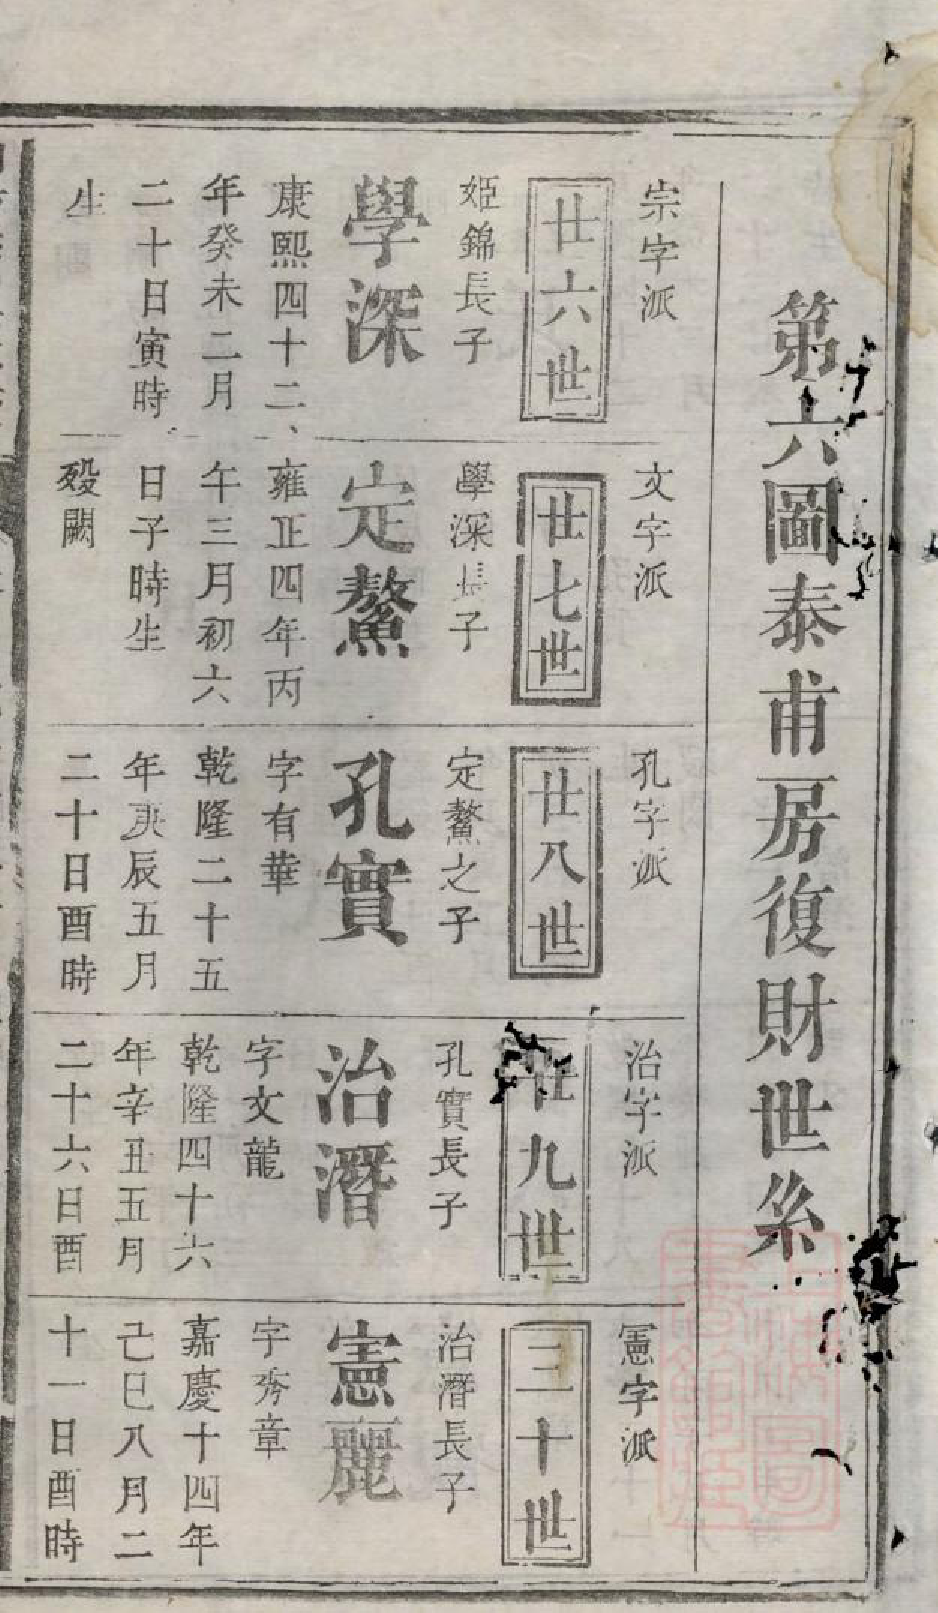 第六圖泰甫房復財世系
宗字派
廿六世
姫錦長子
學深
康熙四十二、
年癸未二月
二十日寅時
生
文字派
廿七世
學深長子
定鰲
雍正四年丙
午三月初六
日子時生
歿闕
孔字派
廿八世
定鰲之子
孔實
字有華
乾隆二十五
年庚辰五月
二十日酉時
治字派
廿九世
孔實長子
治潛
字文龍
乾隆四十六
年辛丑五月
二十六日酉
憲字派
三十世
治潛長子
憲麗
字秀章
嘉慶十四年
己巳八月二
十一日酉時